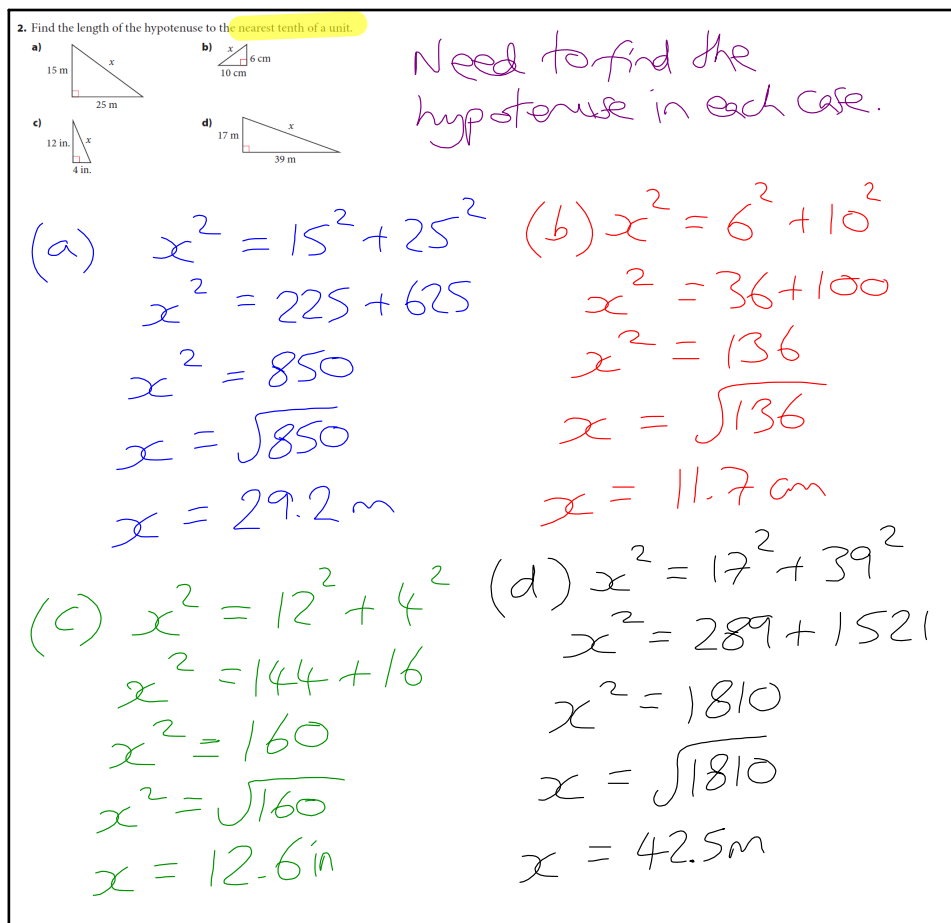 2. Find the length of the hypotenuse to the nearest tenth of a unit.
a)
15 m
x
25 m
b)
x
6 cm
10 cm
c)
12 in.
x
4 in.
d)
17 m
x
39 m
Need to find the
hypotenuse in each case.
(a) x² = 15² + 25²
x² = 225 + 625
x² = 850
x = √850
x = 29.2 m
(b) x² = 6² + 10²
x² = 36 + 100
x² = 136
x = √136
x = 11.7 cm
(c) x² = 12² + 4²
x² = 144 + 16
x² = 160
x² = √160
x = 12.6 in
(d) x² = 17² + 39²
x² = 289 + 1521
x² = 1810
x = √1810
x = 42.5 m